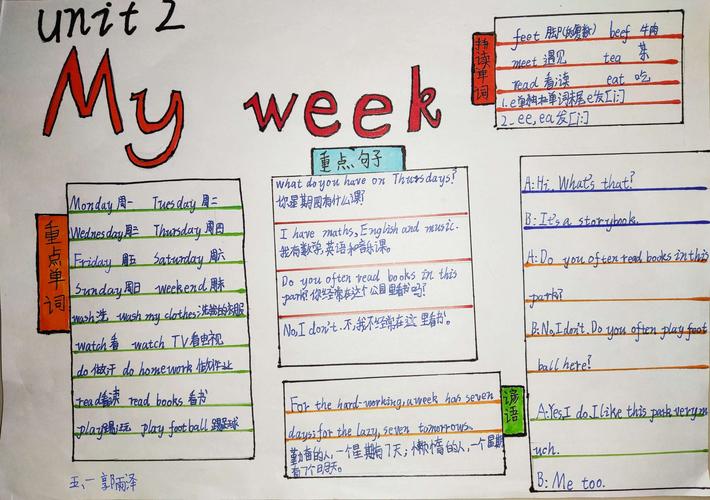 unit 2
My week
拼读单词
feet 脚(的复数) beef 牛肉
meet 遇见 tea 茶
read 看;读 eat 吃
1.e单独在单词末尾e发[i:]
2. ee, ea 发[i:]
重点单词
Monday 周一 Tuesday 周二
Wednesday周三 Thursday 周四
Friday 周五 Saturday 周六
Sunday周日 weekend 周末
wash 洗 wash my clothes 洗我的衣服
watch 看 watch TV看电视
do 做;干 do homework 做作业
read看;读 read books 看书
play踢;玩 play football 踢足球
重点句子
What do you have on Thursdays?
你星期四有什么课?
I have maths, English and music.
我有数学,英语和音乐课。
Do you often read books in this
park? 你经常在这个公园里看书吗?
No, I don't. 不,我不经常在这里看书。
谚语
For the hard-working, a week has seven
days; for the lazy, seven tomorrows.
勤奋的人,一个星期有7天;懒惰的人,一个星期
有7个明天。
A: Hi. What's that?
B: It's a storybook.
A: Do you often read books in this
park?
B: No, I don't. Do you often play foot
ball here?
A: Yes, I do. I like this park very m
uch.
B: Me too.
五、一 郭雨泽